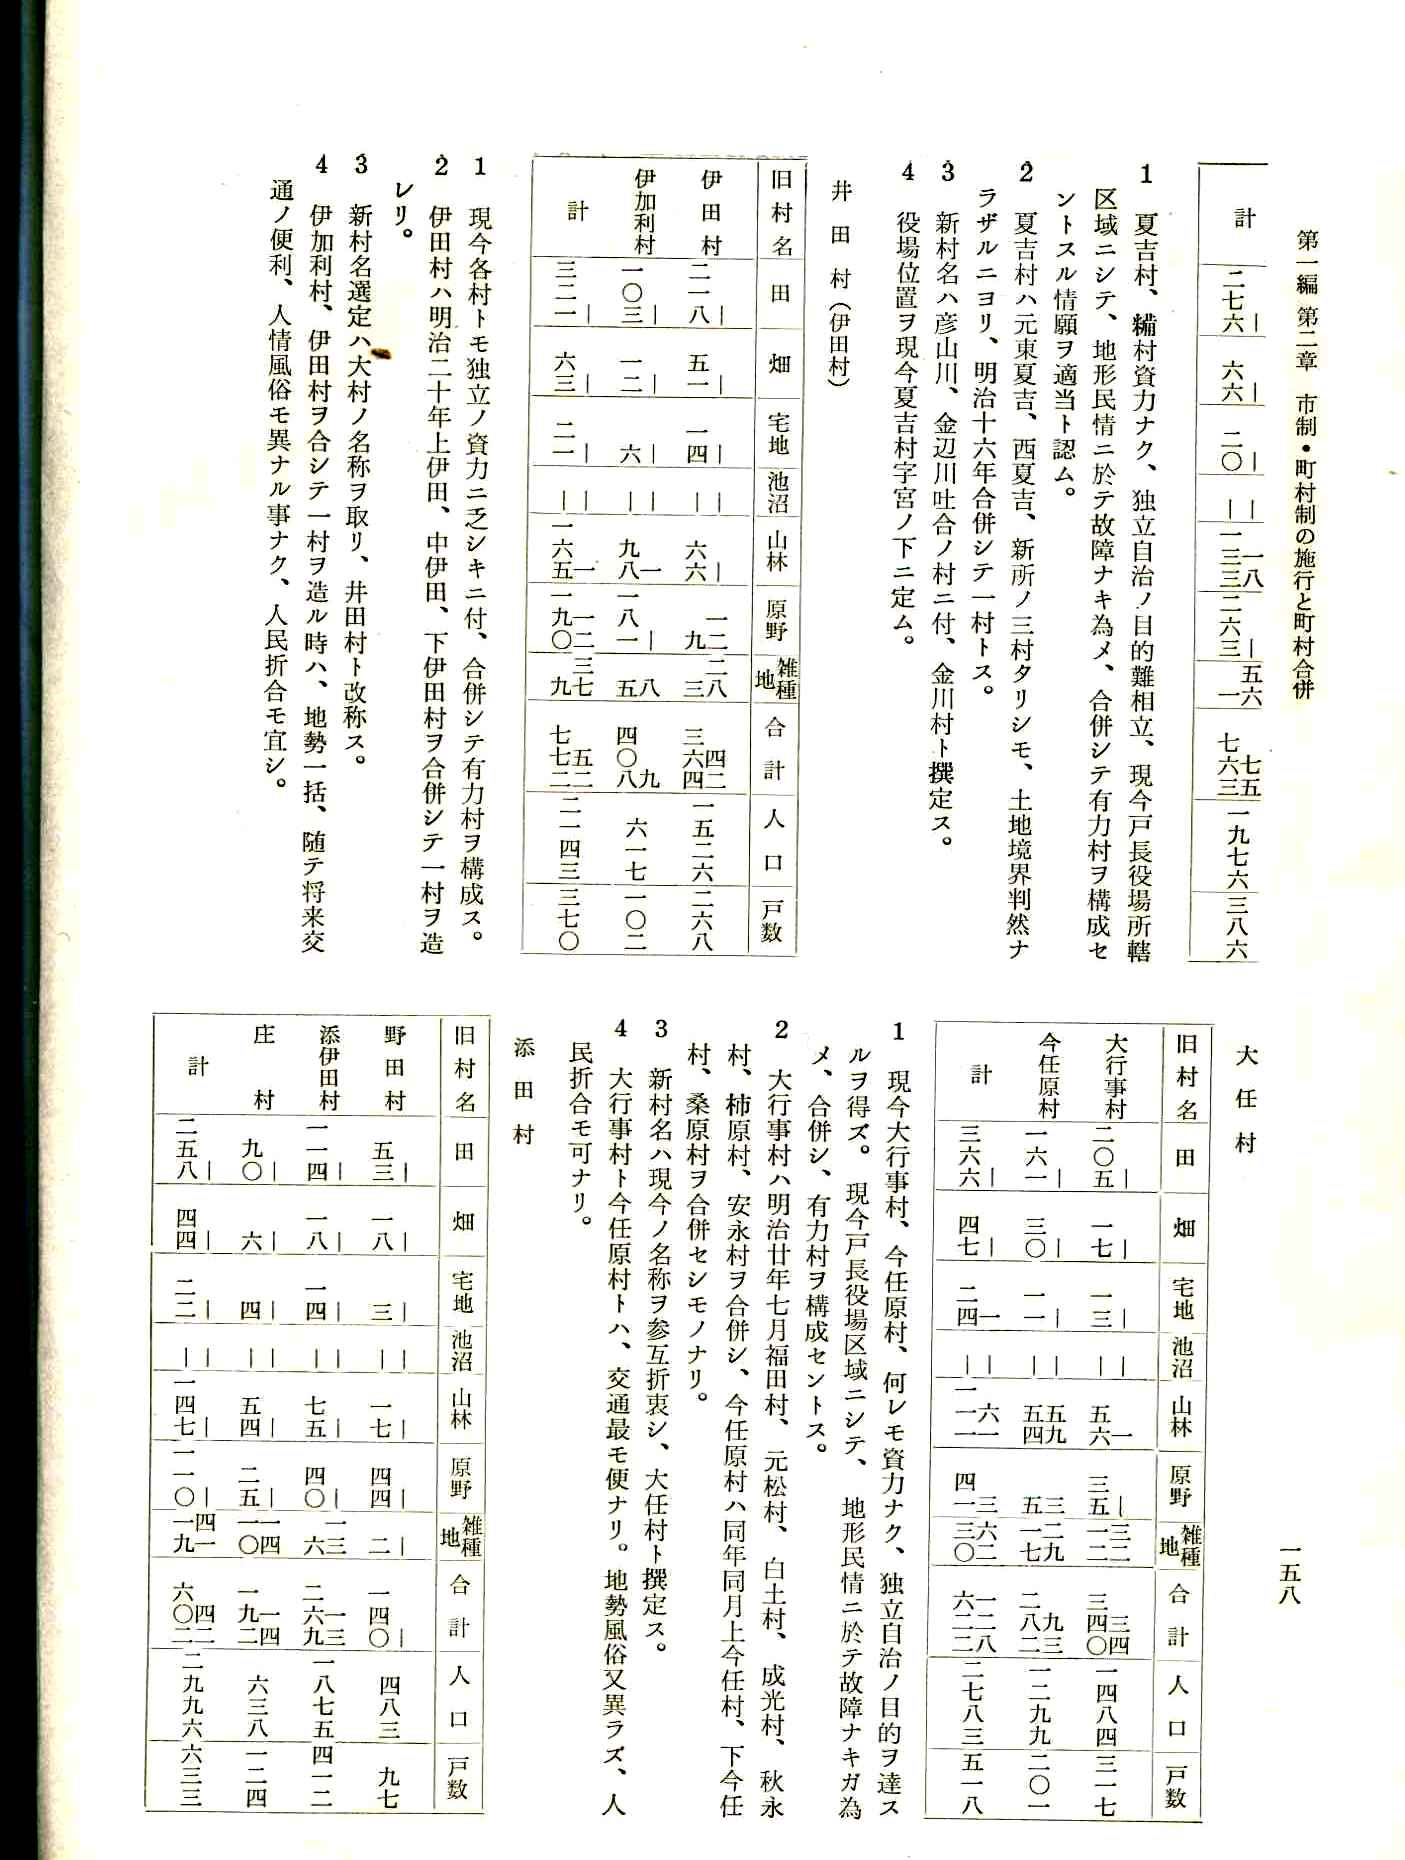 第一編 第二章 市制・町村制の施行と町村合併
一五八
計 二七六｜ 六六｜ 二〇｜ ｜｜ 一三三 一八 二六三｜ 一 五六 七六三 七五 一九七六 三八六
1 夏吉村、糒村資力ナク、独立自治ノ目的難相立、現今戸長役場所轄
区域ニシテ、地形民情ニ於テ故障ナキ為メ、合併シテ有力村ヲ構成セ
ントスル情願ヲ適当ト認ム。
2 夏吉村ハ元東夏吉、西夏吉、新所ノ三村タリシモ、土地境界判然ナ
ラザルニヨリ、明治十六年合併シテ一村トス。
3 新村名ハ彦山川、金辺川吐合ノ村ニ付、金川村ト撰定ス。
4 役場位置ヲ現今夏吉村字宮ノ下ニ定ム。
井田村（伊田村）
旧村名 田 畑 宅地 池沼 山林 原野 雑種地 合計 人口 戸数
伊田村 二一八｜ 五一｜ 一四｜ ｜｜ 六六｜ 九 一二 三 二八 三六四 四二 一五二六 二六八
伊加利村 一〇三｜ 一二｜ 六｜ ｜｜ 九八 一 一八一｜ 五 八 四〇八 九 六一七 一〇二
計 三二一｜ 六三｜ 二一｜ ｜｜ 一六五 一 一九〇 一二 九 三七 七七二 五二 二一四三 三七〇
1 現今各村トモ独立ノ資力ニ乏シキニ付、合併シテ有力村ヲ構成ス。
2 伊田村ハ明治二十年上伊田、中伊田、下伊田村ヲ合併シテ一村ヲ造
レリ。
3 新村名選定ハ大村ノ名称ヲ取リ、井田村ト改称ス。
4 伊加利村、伊田村ヲ合シテ一村ヲ造ル時ハ、地勢一括、随テ将来交
通ノ便利、人情風俗モ異ナル事ナク、人民折合モ宜シ。
大任村
旧村名 田 畑 宅地 池沼 山林 原野 雑種地 合計 人口 戸数
大行事村 二〇五｜ 一七｜ 一三｜ ｜｜ 五六 一 三五｜ 一二 三二 三四〇 三四 一四八四 三一七
今任原村 一六一｜ 三〇｜ 一一｜ ｜｜ 五四 五九 五 三 一七 二九 二八二 九三 一二九九 二〇一
計 三六六｜ 四七｜ 二四 一 ｜｜ 一一一 六一 四一 三 三〇 六二 六二二 一二八 二七八三 五一八
1 現今大行事村、今任原村、何レモ資力ナク、独立自治ノ目的ヲ達ス
ルヲ得ズ。現今戸長役場区域ニシテ、地形民情ニ於テ故障ナキガ為
メ、合併シ、有力村ヲ構成セントス。
2 大行事村ハ明治廿年七月福田村、元松村、白土村、成光村、秋永
村、柿原村、安永村ヲ合併シ、今任原村ハ同年同月上今任村、下今任
村、桑原村ヲ合併セシモノナリ。
3 新村名ハ現今ノ名称ヲ参互折衷シ、大任村ト撰定ス。
4 大行事村ト今任原村トハ、交通最モ便ナリ。地勢風俗又異ラズ、人
民折合モ可ナリ。
添田村
旧村名 田 畑 宅地 池沼 山林 原野 雑種地 合計 人口 戸数
野田村 五三｜ 一八｜ 三｜ ｜｜ 一七｜ 四四｜ 二｜ 一四〇｜ 四八三 九七
添伊田村 一一四｜ 一八｜ 一四｜ ｜｜ 七五｜ 四〇｜ 六 一三 二六九 一三 一八七五 四一二
庄村 九〇｜ 六｜ 四｜ ｜｜ 五四｜ 二五｜ 一〇 一四 一九二 一四 六三八 一二四
計 二五八｜ 四四｜ 二二｜ ｜｜ 一四七｜ 一一〇｜ 一九 四一 六〇二 四二 二九九六 六三三